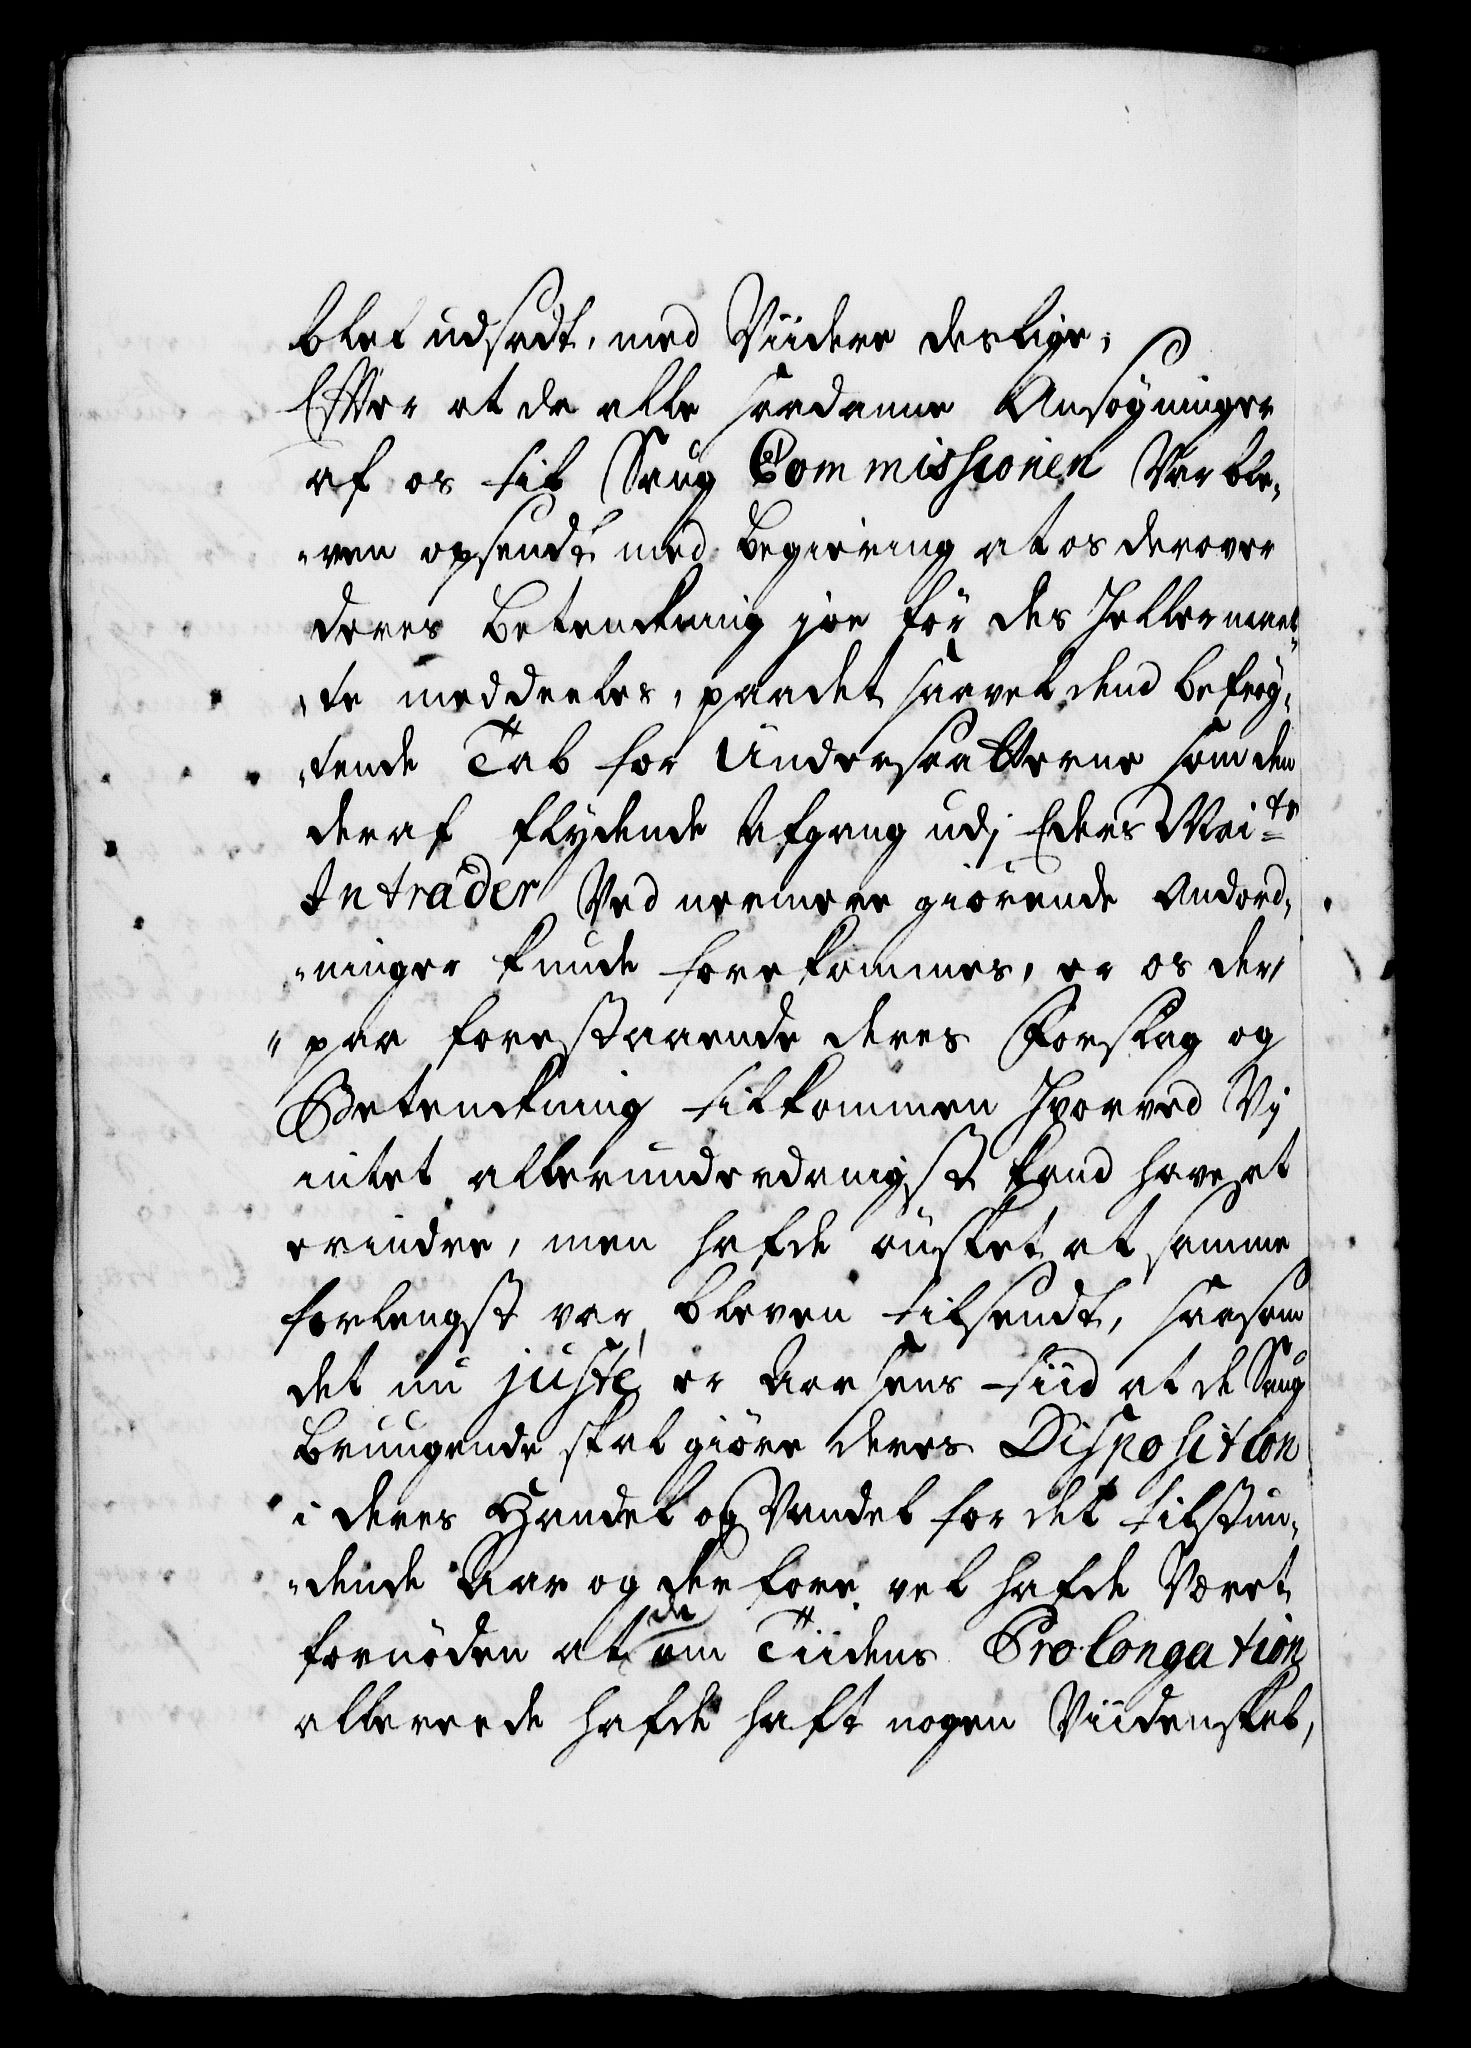 blef udsadt, med Viidere deslige;
Efter at de alle saadanne Ansøgninger
af os til Saug Commissionen Var ble,
„ven opsendt med begiering at os derover
deres Betenckning jøe før des heller maat„
„te meddeeles, paadet saavel dend befrøg,
„tende Tab for Undersaatterne som den
deraf flydende Afgang udj Eders Mai:ts
Intrader Ved nermere giørende Andord,
„ninger kunde forekommes, er os der„
„paa forestaaende deres Forslag og
Betenckning tilkommen hvorved Vj
intet allerunderdanigst kand have at
erindre, men hafde ønsket at samme
forlengst var bleven tilsendt, saasom
det nu juste er Aarsens tiid at de Saug
brugende skal giøre deres Disposition
i deres Handel og Vandel for det tilstun,
„dende Aar og derfore vel hafde Været
fornøden at de om Tiidens Prolongation
allereede hafde haft nogen Viidenskab,